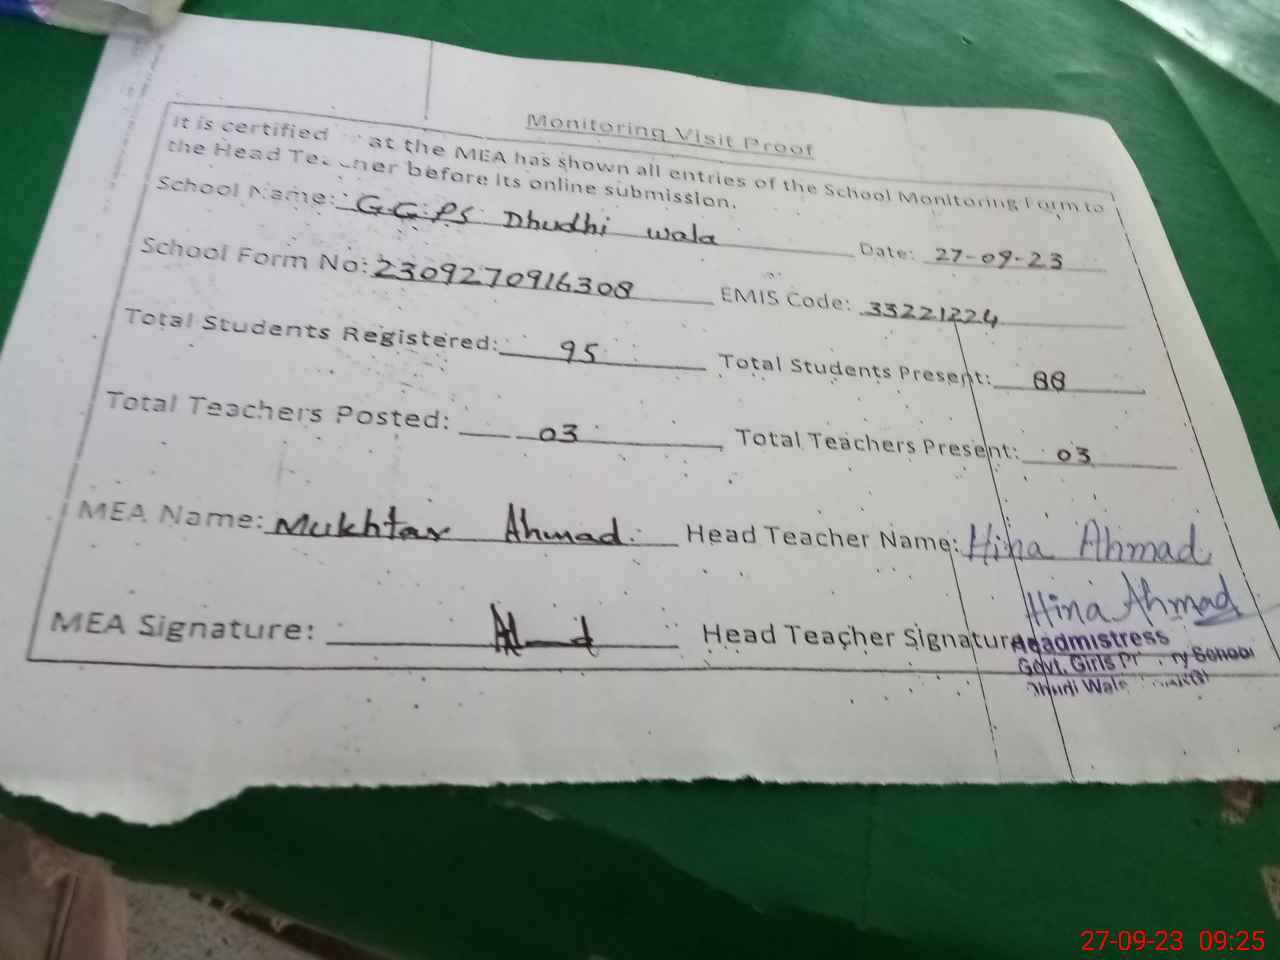 Monitoring Visit Proof
It is certified at the MEA has shown all entries of the School Monitoring Form to
the Head Teacher before its online submission.
School Name: GGPS Dhudhi wala Date: 27-09-23
School Form No: 2309270916308 EMIS Code: 33221224
Total Students Registered: 95 Total Students Present: 88
Total Teachers Posted: 03 Total Teachers Present: 03
MEA Name: Mukhtar Ahmad. Head Teacher Name: Hina Ahmad
Hina Ahmad
MEA Signature: Head Teacher Signature
Headmistress
Govt. Girls School
27-09-23 09:25